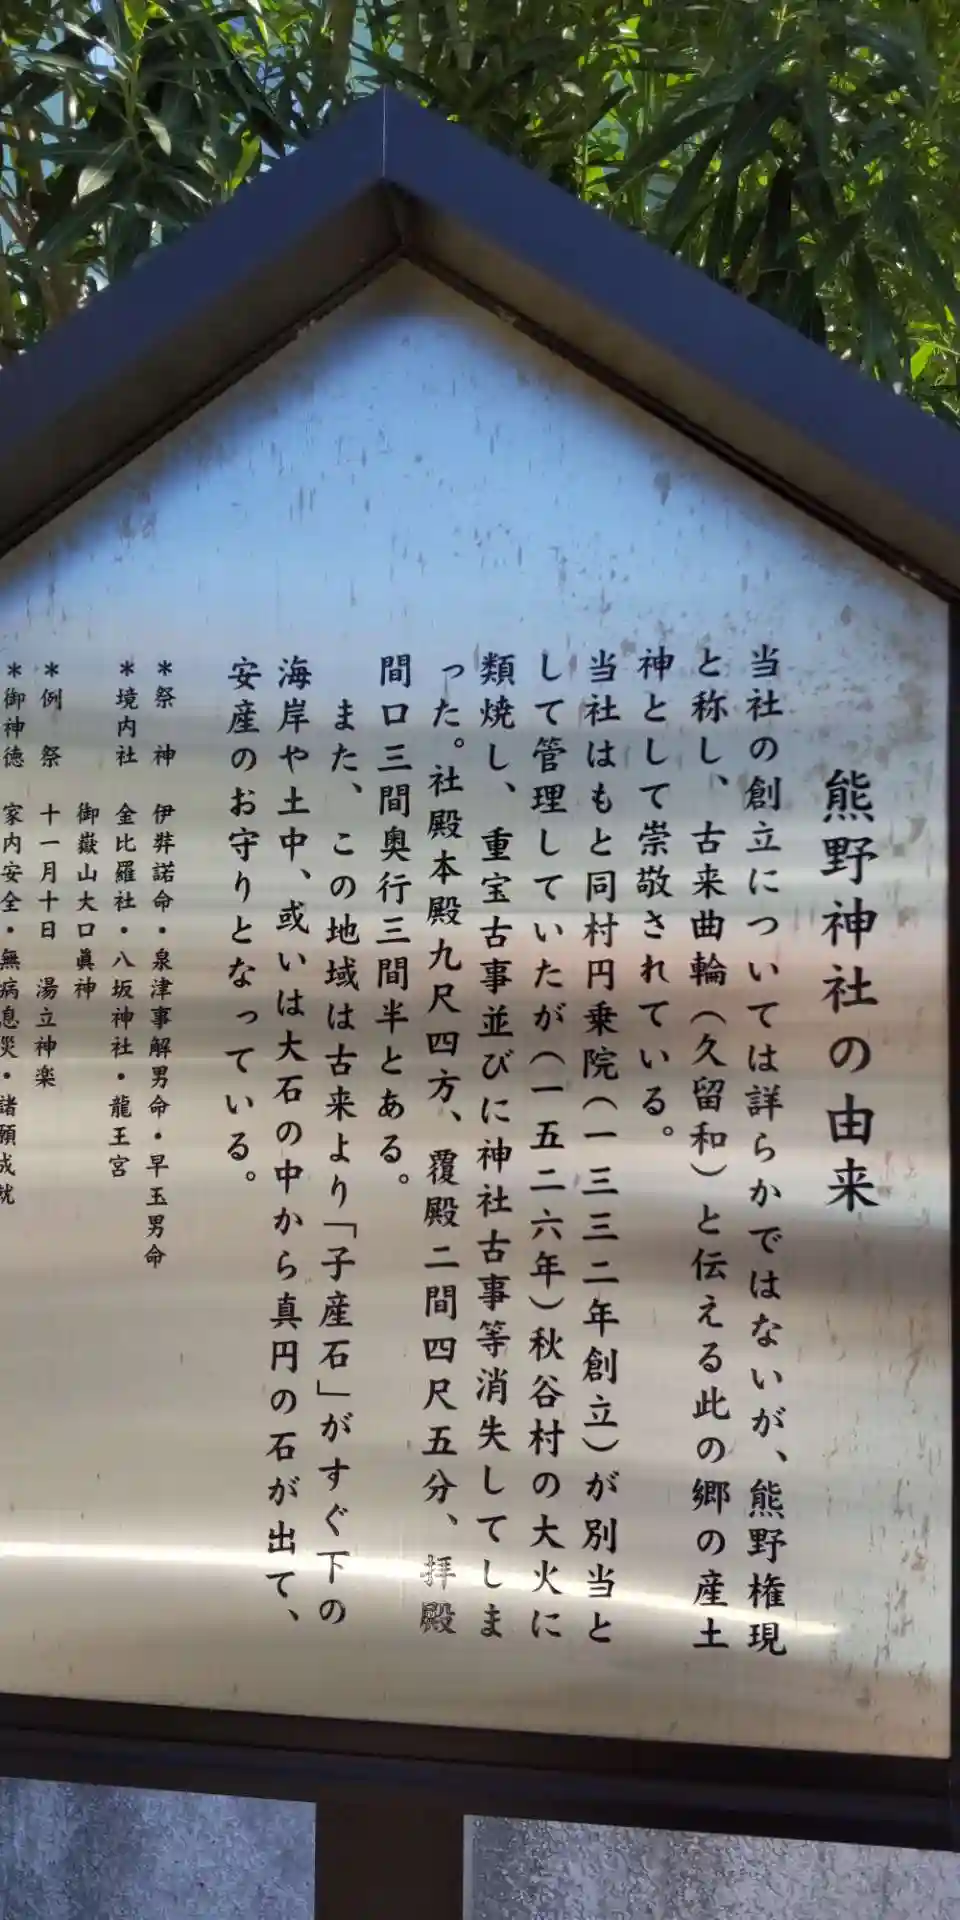 熊野神社の由来
当社の創立については詳らかではないが、熊野権現
と称し、古来曲輪（久留和）と伝える此の郷の産土
神として崇敬されている。
当社はもと同村円乗院（一三三二年創立）が別当と
して管理していたが（一五二六年）秋谷村の大火に
類焼し、重宝古事並びに神社古事等消失してしま
った。社殿本殿九尺四方、覆殿二間四尺五分、拝殿
間口三間奥行三間半とある。
また、この地域は古来より「子産石」がすぐ下の
海岸や土中、或いは大石の中から真円の石が出て、
安産のお守りとなっている。
＊祭　神　伊弉諾命・泉津事解男命・早玉男命
＊境内社　金比羅社・八坂神社・龍王宮
御嶽山大口眞神
＊例　祭　十一月十日　湯立神楽
＊御神徳　家内安全・無病息災・諸願成就